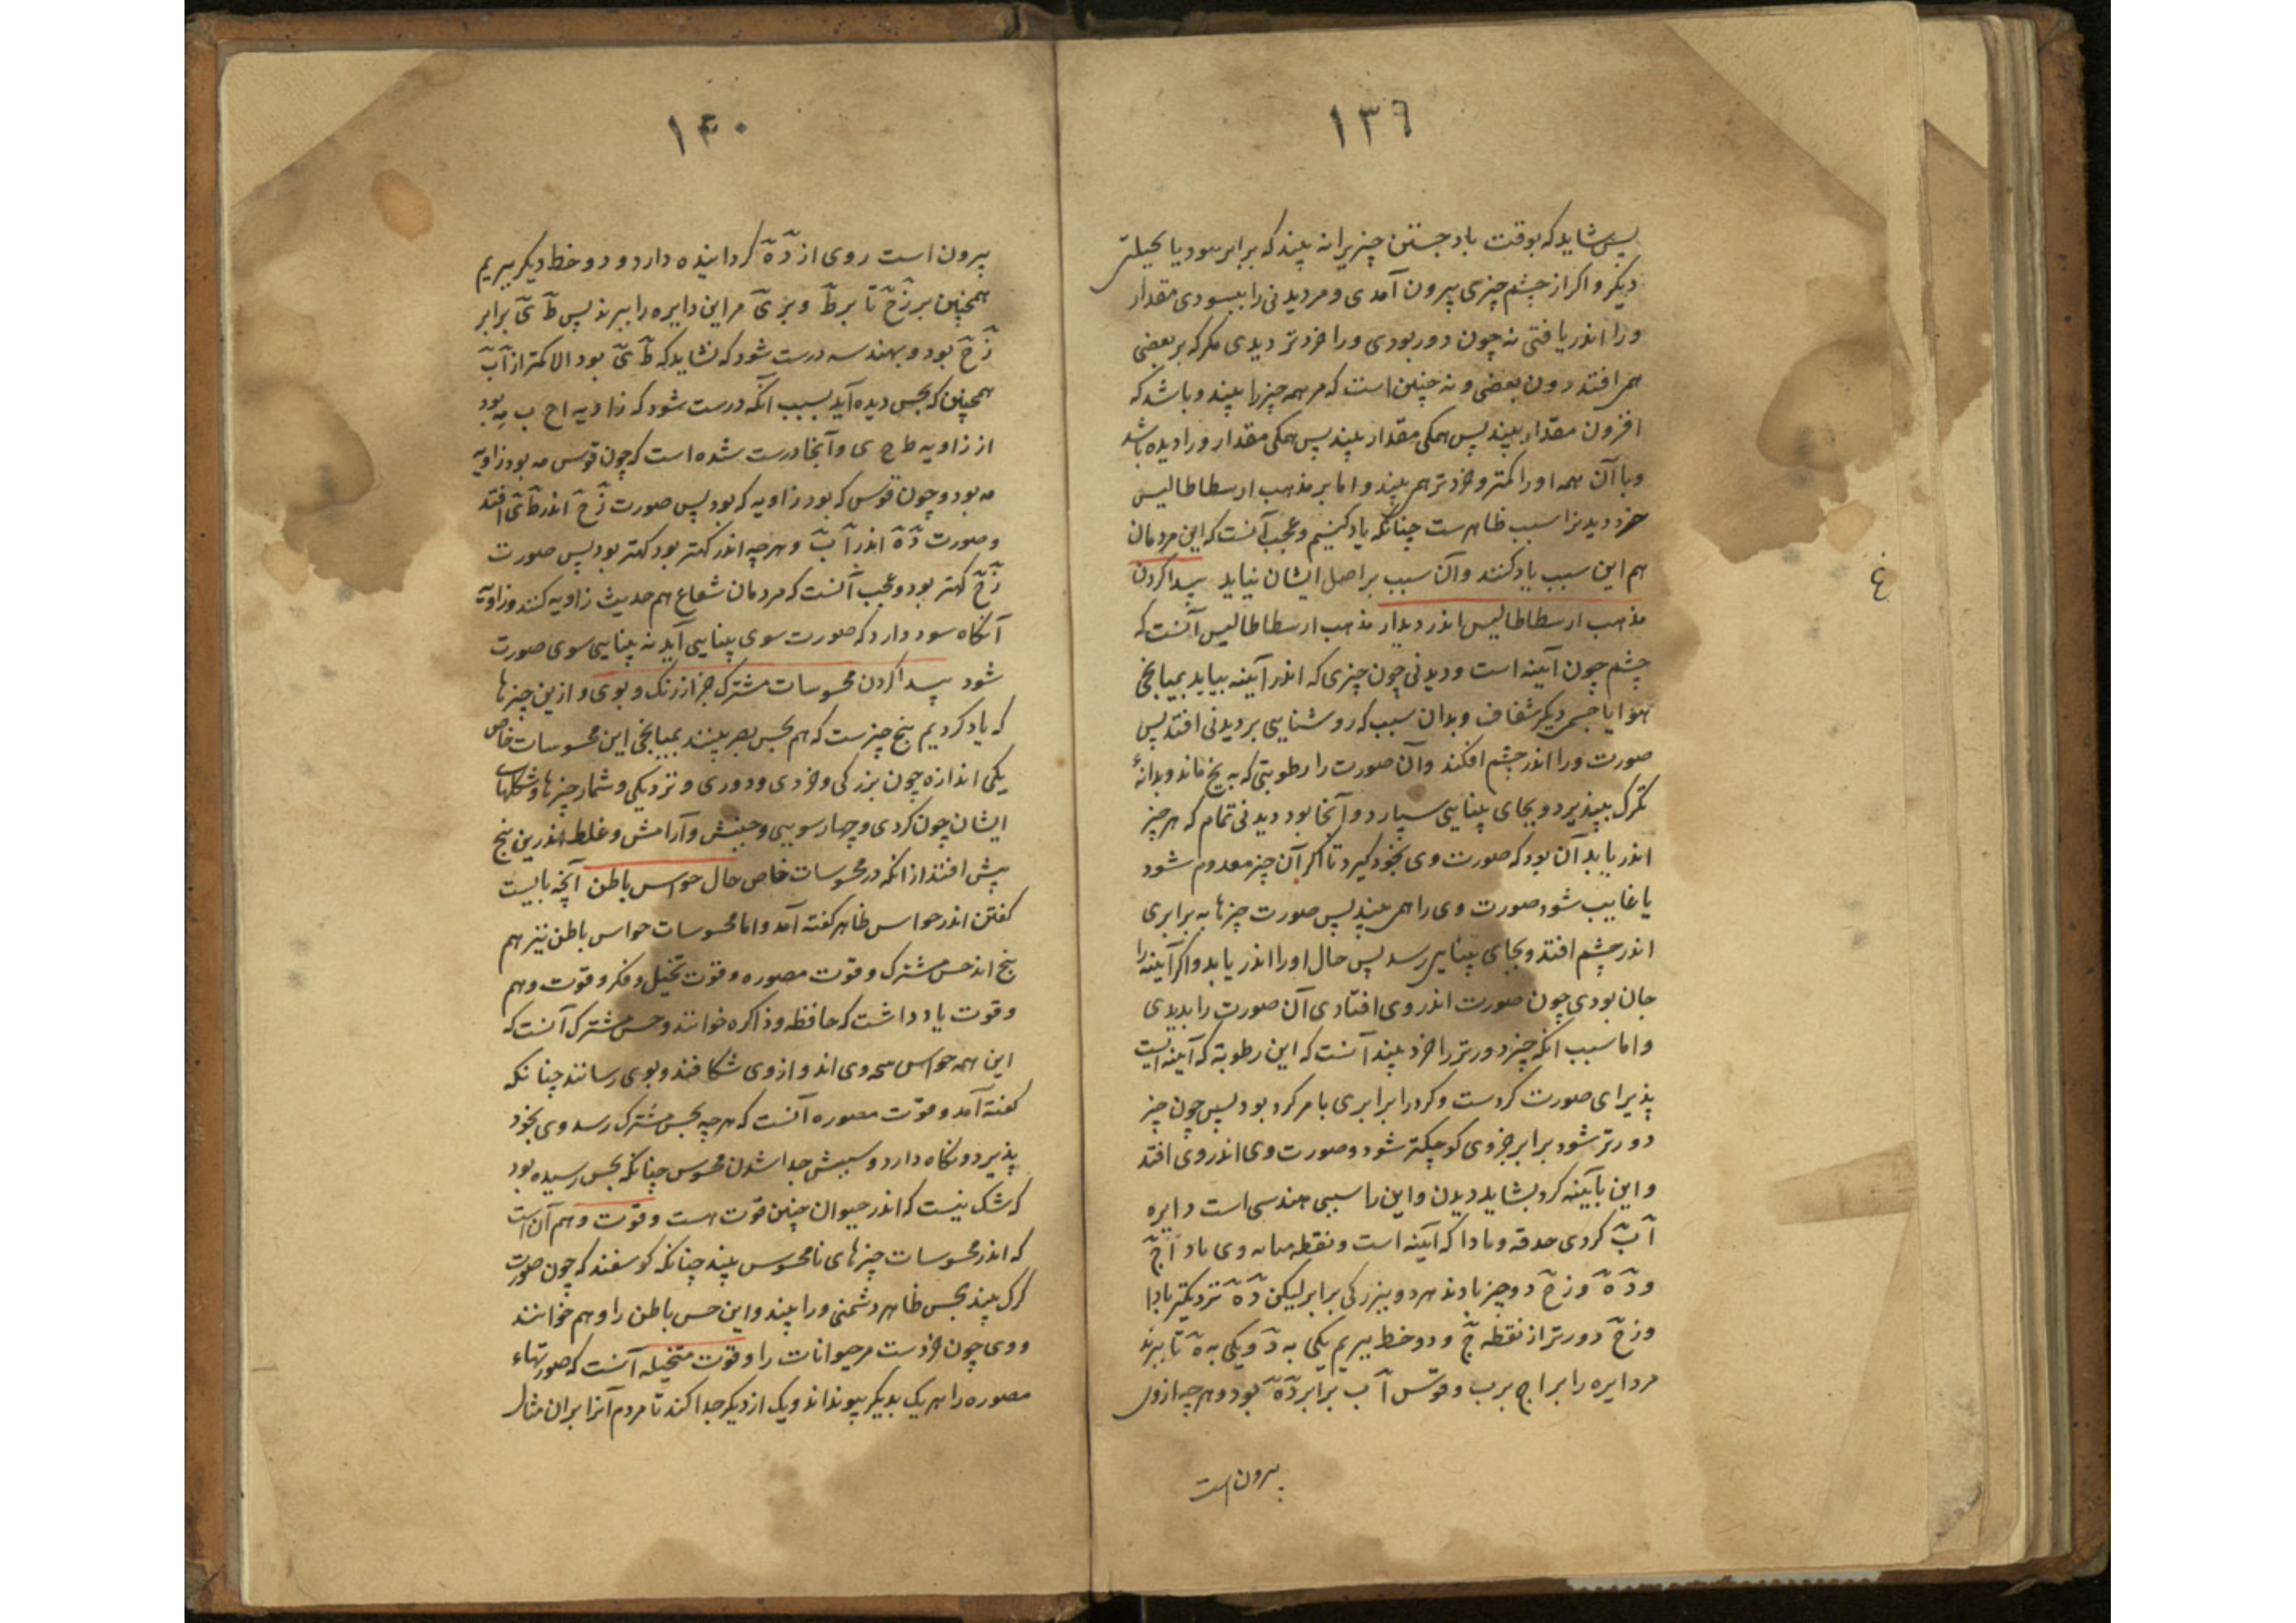 ١٣٦
پس شاید که بوقت باد جستن چیزیرا نه بیند که برابر بود یا بحیلتی
دیگر و اگر از چشم چیزی بیرون آمدی و مر دیدنی را ببسودی مقدار
ورا اندر یافتی نه چون دور بودی ورا خردتر دیدی مگر که بر بعضی
همی افتد دون بعضی و نه چنین است که مر همه چیز را بیند و باشد که
افزون مقدار بیند پس همگی مقدار بیند پس همگی مقدار ورا دیده باشد
و با آن همه او را کمتر و خردتر همی بیند و اما بر مذهب ارسطاطالیس
خرد دیدنرا سبب ظاهرست چنانکه یاد کنیم و عجب آنست که این مردمان
هم این سبب یاد کنند و آن سبب بر اصل ایشان نیاید پیدا کردن
مذهب ارسطاطالیس اندر دیدار مذهب ارسطاطالیس آنست که
چشم چون آینه است و دیدنی چون چیزی که اندر آیینه بیاید بمیانجی
هوا یا جسمی دیگر شفاف و بدان سبب که روشنایی بر دیدنی افتد پس
صورت ورا اندر چشم افکند و آن صورت را رطوبتی که به یخ ماند و بدانهٔ
تگرک بپذیرد و بجای بینایی سپارد و آنجا بود دیدنی تمام که هر چیز
اندر یابد آن بود که صورت وی بخود گیرد تا اگر آن چیز معدوم شود
یا غایب شود صورت وی را همی بیند پس صورت چیزها به برابری
اندر چشم افتد و بجای بینایی رسد پس حال او را اندر یابد و اگر آیینه را
جان بودی چون صورت اندر وی افتادی آن صورت را بدیدی
و اما سبب آنکه چیز دورتر را خرد بیند آنست که این رطوبة که آینه است
پذیرای صورت گردست و گرد را برابری با مرکز بود پس چون چیز
دورتر شود برابر جزوی کوچکتر شود و صورت وی اندر وی افتد
و این بآیینه گرد بشاید دیدن و این را سببی هندسی است دایره
آ ب گردی حدقه وبادا که آینه است و نقطه میانه وی باد آ ج
و د ه و ز ح دو چیز بادند هر دو ببزرگی برابر لیکن د ه نزدیکتر بادا
و ز ح دورتر از نقطه ج و دو خط ببریم یکی به د و یکی به ه تا ببرند
مر دایره را بر ا ج بر ب و قوس آ ب برابر د ه بود و هر چه از وی
بیرون است
١۴٠
بیرون است روی از د ه گردانیده دارد و دو خط دیگر ببریم
همچنین بر ز ح تا بر ط و بر ی مر این دایره را ببرند پس ط ی برابر
ز ح بود و بهندسه درست شود که نشاید که ط ی بود الا کمتر از آ ب
همچنین که بحس دیده آید بسبب آنکه درست شود که زاویه ا ح ب مه بود
از زاویه ط ح ی و آنجا درست شده است که چون قوس مه بود زاویه
مه بود و چون قوس که بود زاویه که بود پس صورت ز ح اندر ط ی افتد
و صورت د ه اندر آ ب و هر چه اندر کهتر بود کهتر بود پس صورت
ز ح کهتر بود و عجب آنست که مردمان شعاع هم حدیث زاویه کنند و زاویه
آنگاه سود دارد که صورت سوی بینایی آید نه بینایی سوی صورت
شود پیدا کردن محسوسات مشترک جز از رنگ و بوی و ازین چیزها
که یاد کردیم پنج چیزست که هم بحس بصر بینند بمیانجی این محسوسات خاص
یکی اندازه چون بزرگی و خردی و دوری و نزدیکی و شمار چیزها و شکلهای
ایشان چون گردی و چهارسویی و جنبش و آرامش و غلط اندرین پنج
بیش افتد از آنکه در محسوسات خاص حال حواس باطن آنچه بایست
گفتن اندر حواس ظاهر گفته آمد و اما محسوسات حواس باطن نیز هم
پنج اند حس مشترک و قوت مصوره و قوت تخیل و فکر و قوت وهم
و قوت یادداشت که حافظه و ذاکره خوانند و حس مشترک آنست که
این همه حواس وی اند و از وی شکافند و بوی رسانند چنانکه
گفته آمد و قوّت مصوره آنست که هر چه بحس مشترک رسد وی بخود
پذیرد و نگاه دارد و سپسش جدا شدن محسوس چنانکه بحس رسیده بود
که شک نیست که اندر حیوان چنین قوت هست و قوّت وهم آن است
که اندر محسوسات چیزهای نامحسوس بیند چنانکه گوسفند که چون صورت
گرگ بیند بحس ظاهر دشمنی ورا بیند و این حس باطن را وهم خوانند
و وی چون خردست مر حیوانات را و قوت متخیله آنست که صورتهاء
مصوره را هر یک بدیگر پیوندانَد و یک از دیگر جدا کند تا مردم آنرا بران مثال